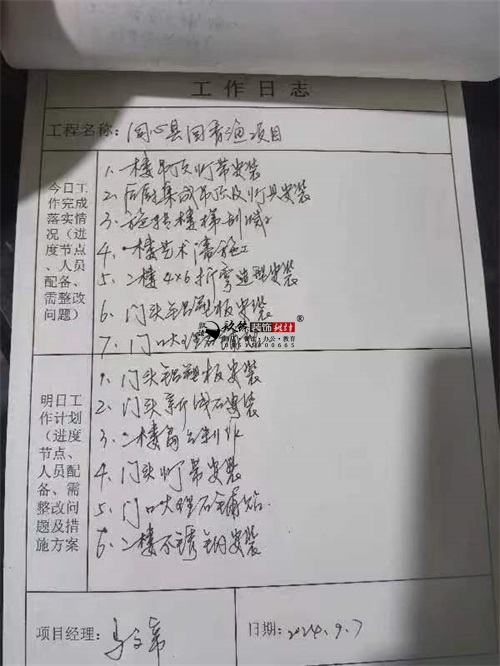 工作日志
工程名称: 同心县回香渔项目
今日工作完成落实情况(进度节点、人员配备、需整改问题)
1、一楼吊顶灯带安装
2、后厨集成吊顶及灯具安装
3、旋转楼梯
4、一楼艺术漆施工
5、二楼4×6折弯造型安装
6、门头铝塑板安装
7、门口大理石
装饰设计®
办公·教育
明日工作计划(进度节点、人员配备、需整改问题及措施方案)
1、门头铝塑板安装
2、门头安装
3、二楼
4、门头灯带安装
5、门口大理石铺贴
6、二楼不锈钢安装
项目经理:
日期: 2024.9.7